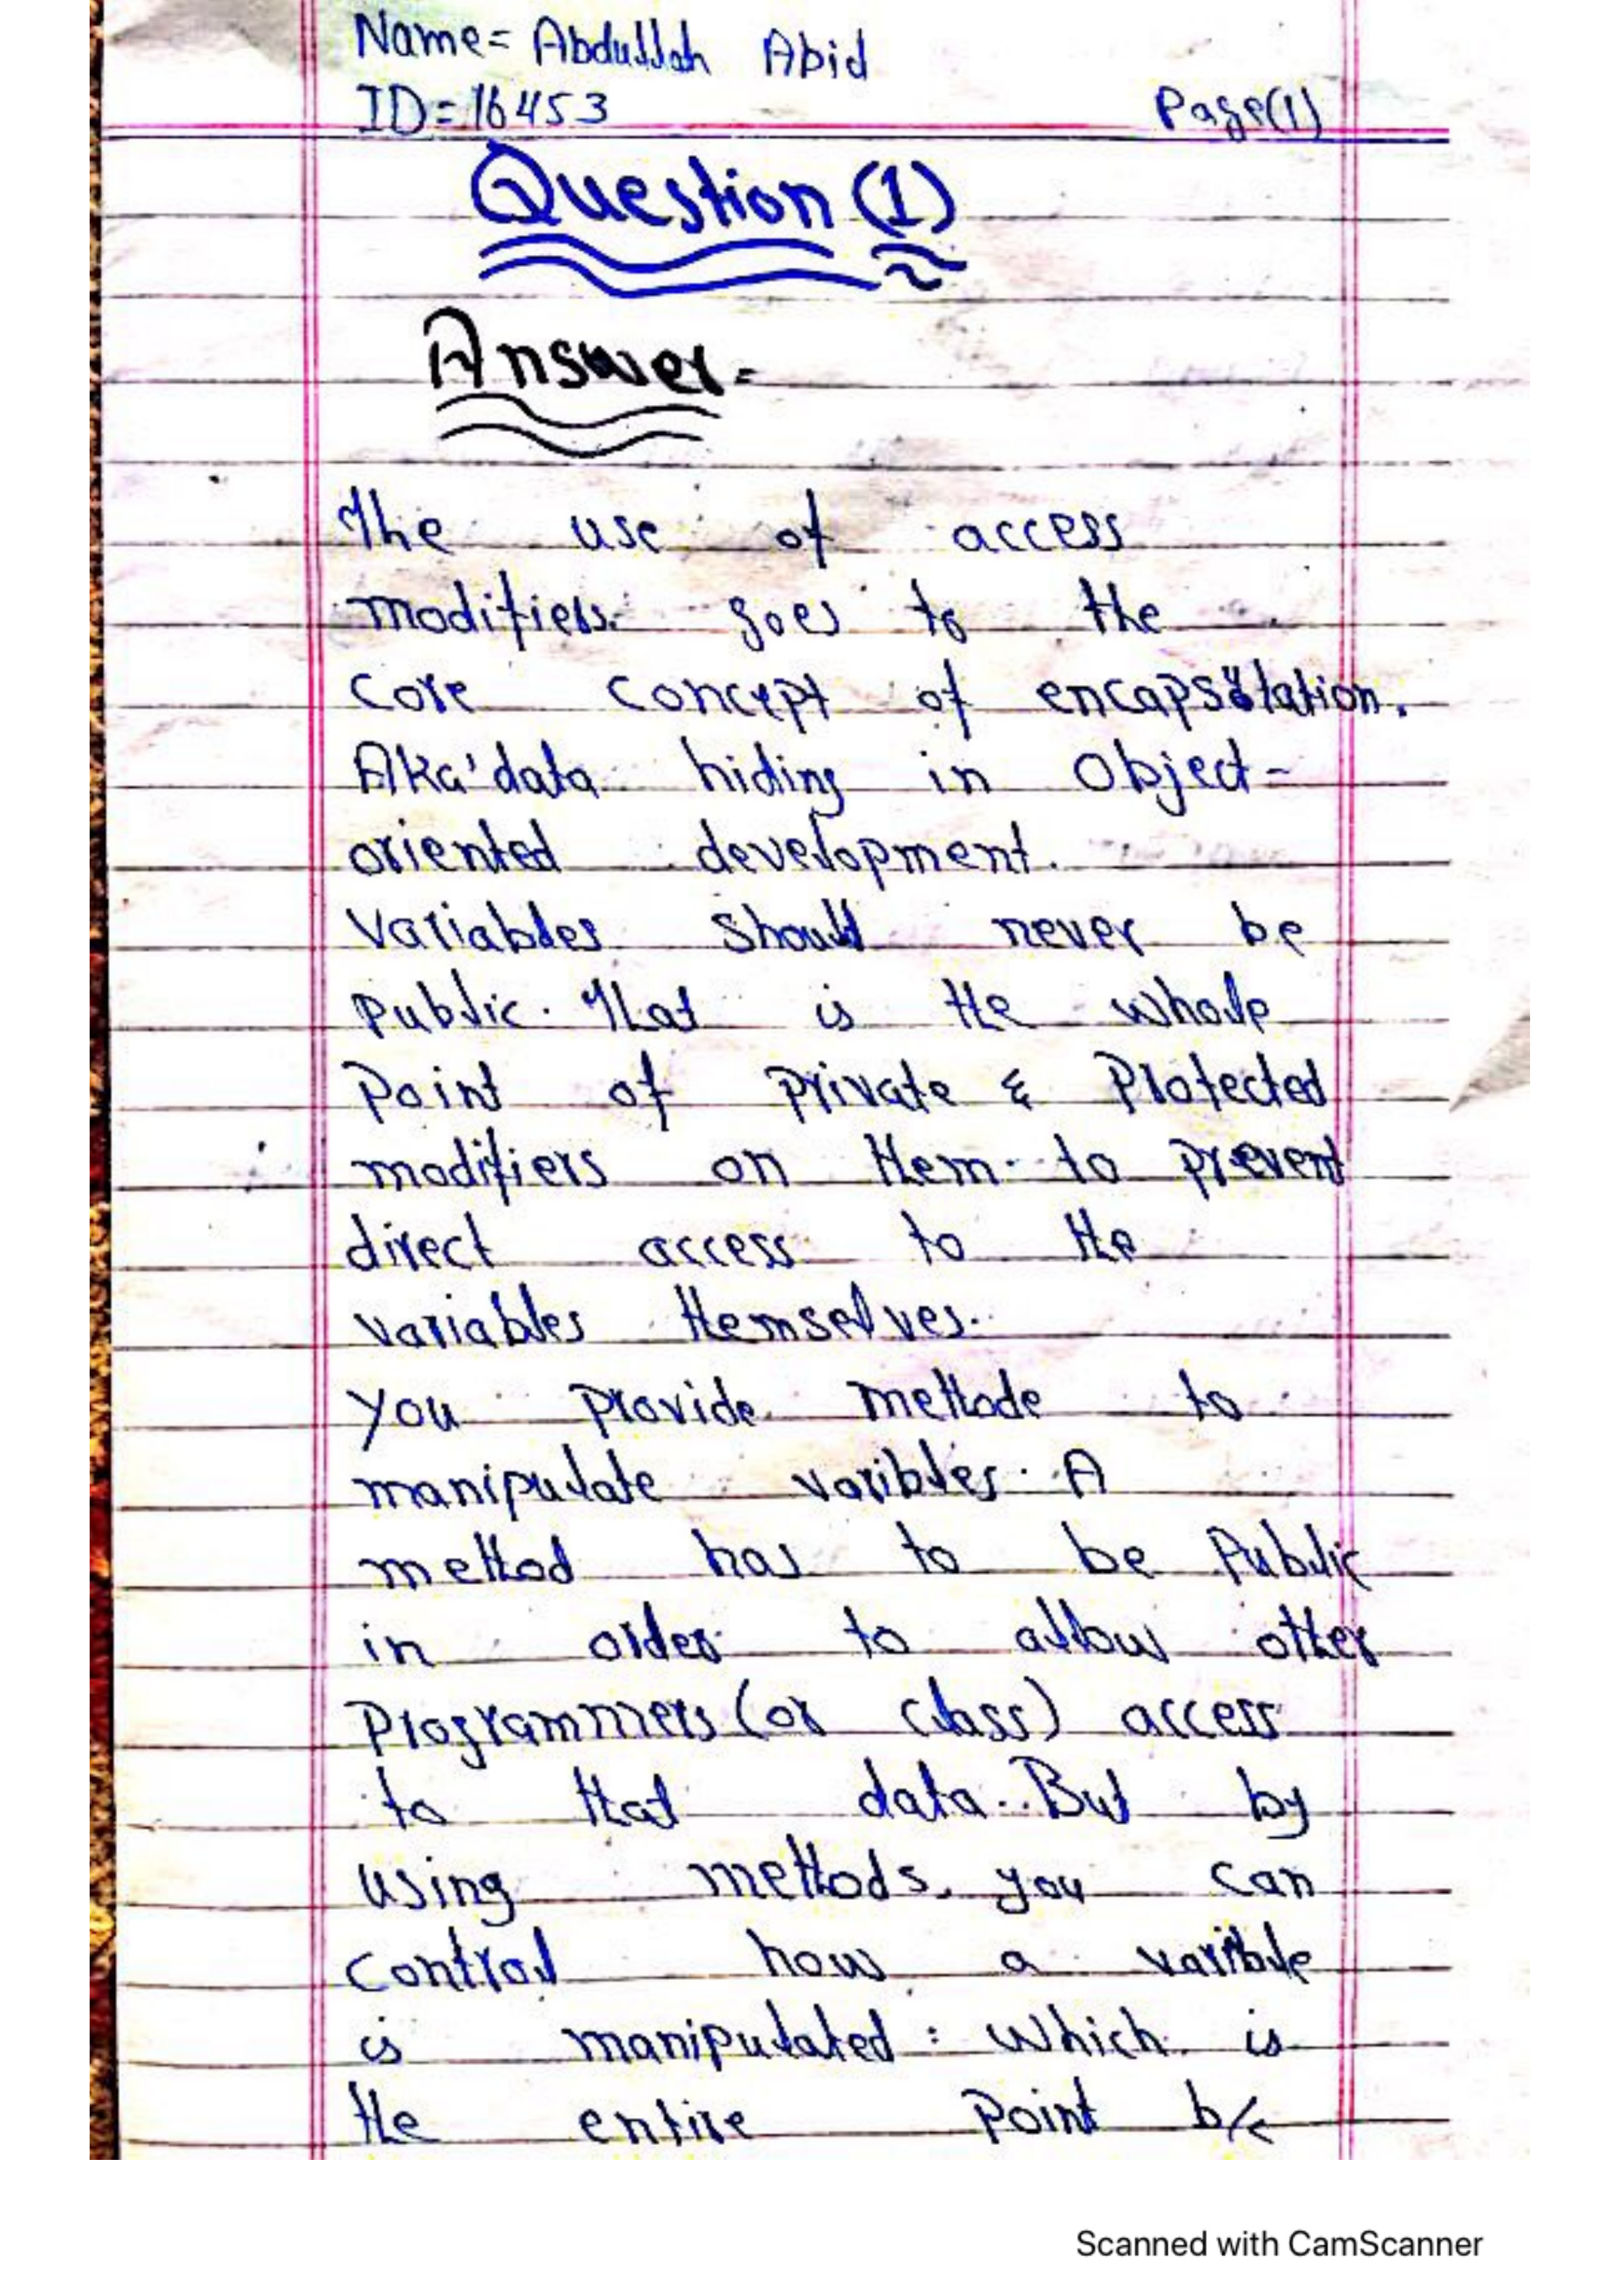 Name= Abdullah Abid
ID=16453
Page(1)
Question (1)
Answer-
The use of access
modifiers goes to the
core concept of encapsulation.
Aka'data hiding in Object-
oriented development.
Variables should never be
public. That is the whole
Point of private & Protected
modifiers on them to prevent
direct access to the
variables themselves.
You provide methode to
manipulate varibles. A
method has to be Public
in order to allow other
Programmers (or class) access
to that data. But by
using methods, you can
control how a varible
is manipulated: which is
the entire Point b/c
Scanned with CamScanner